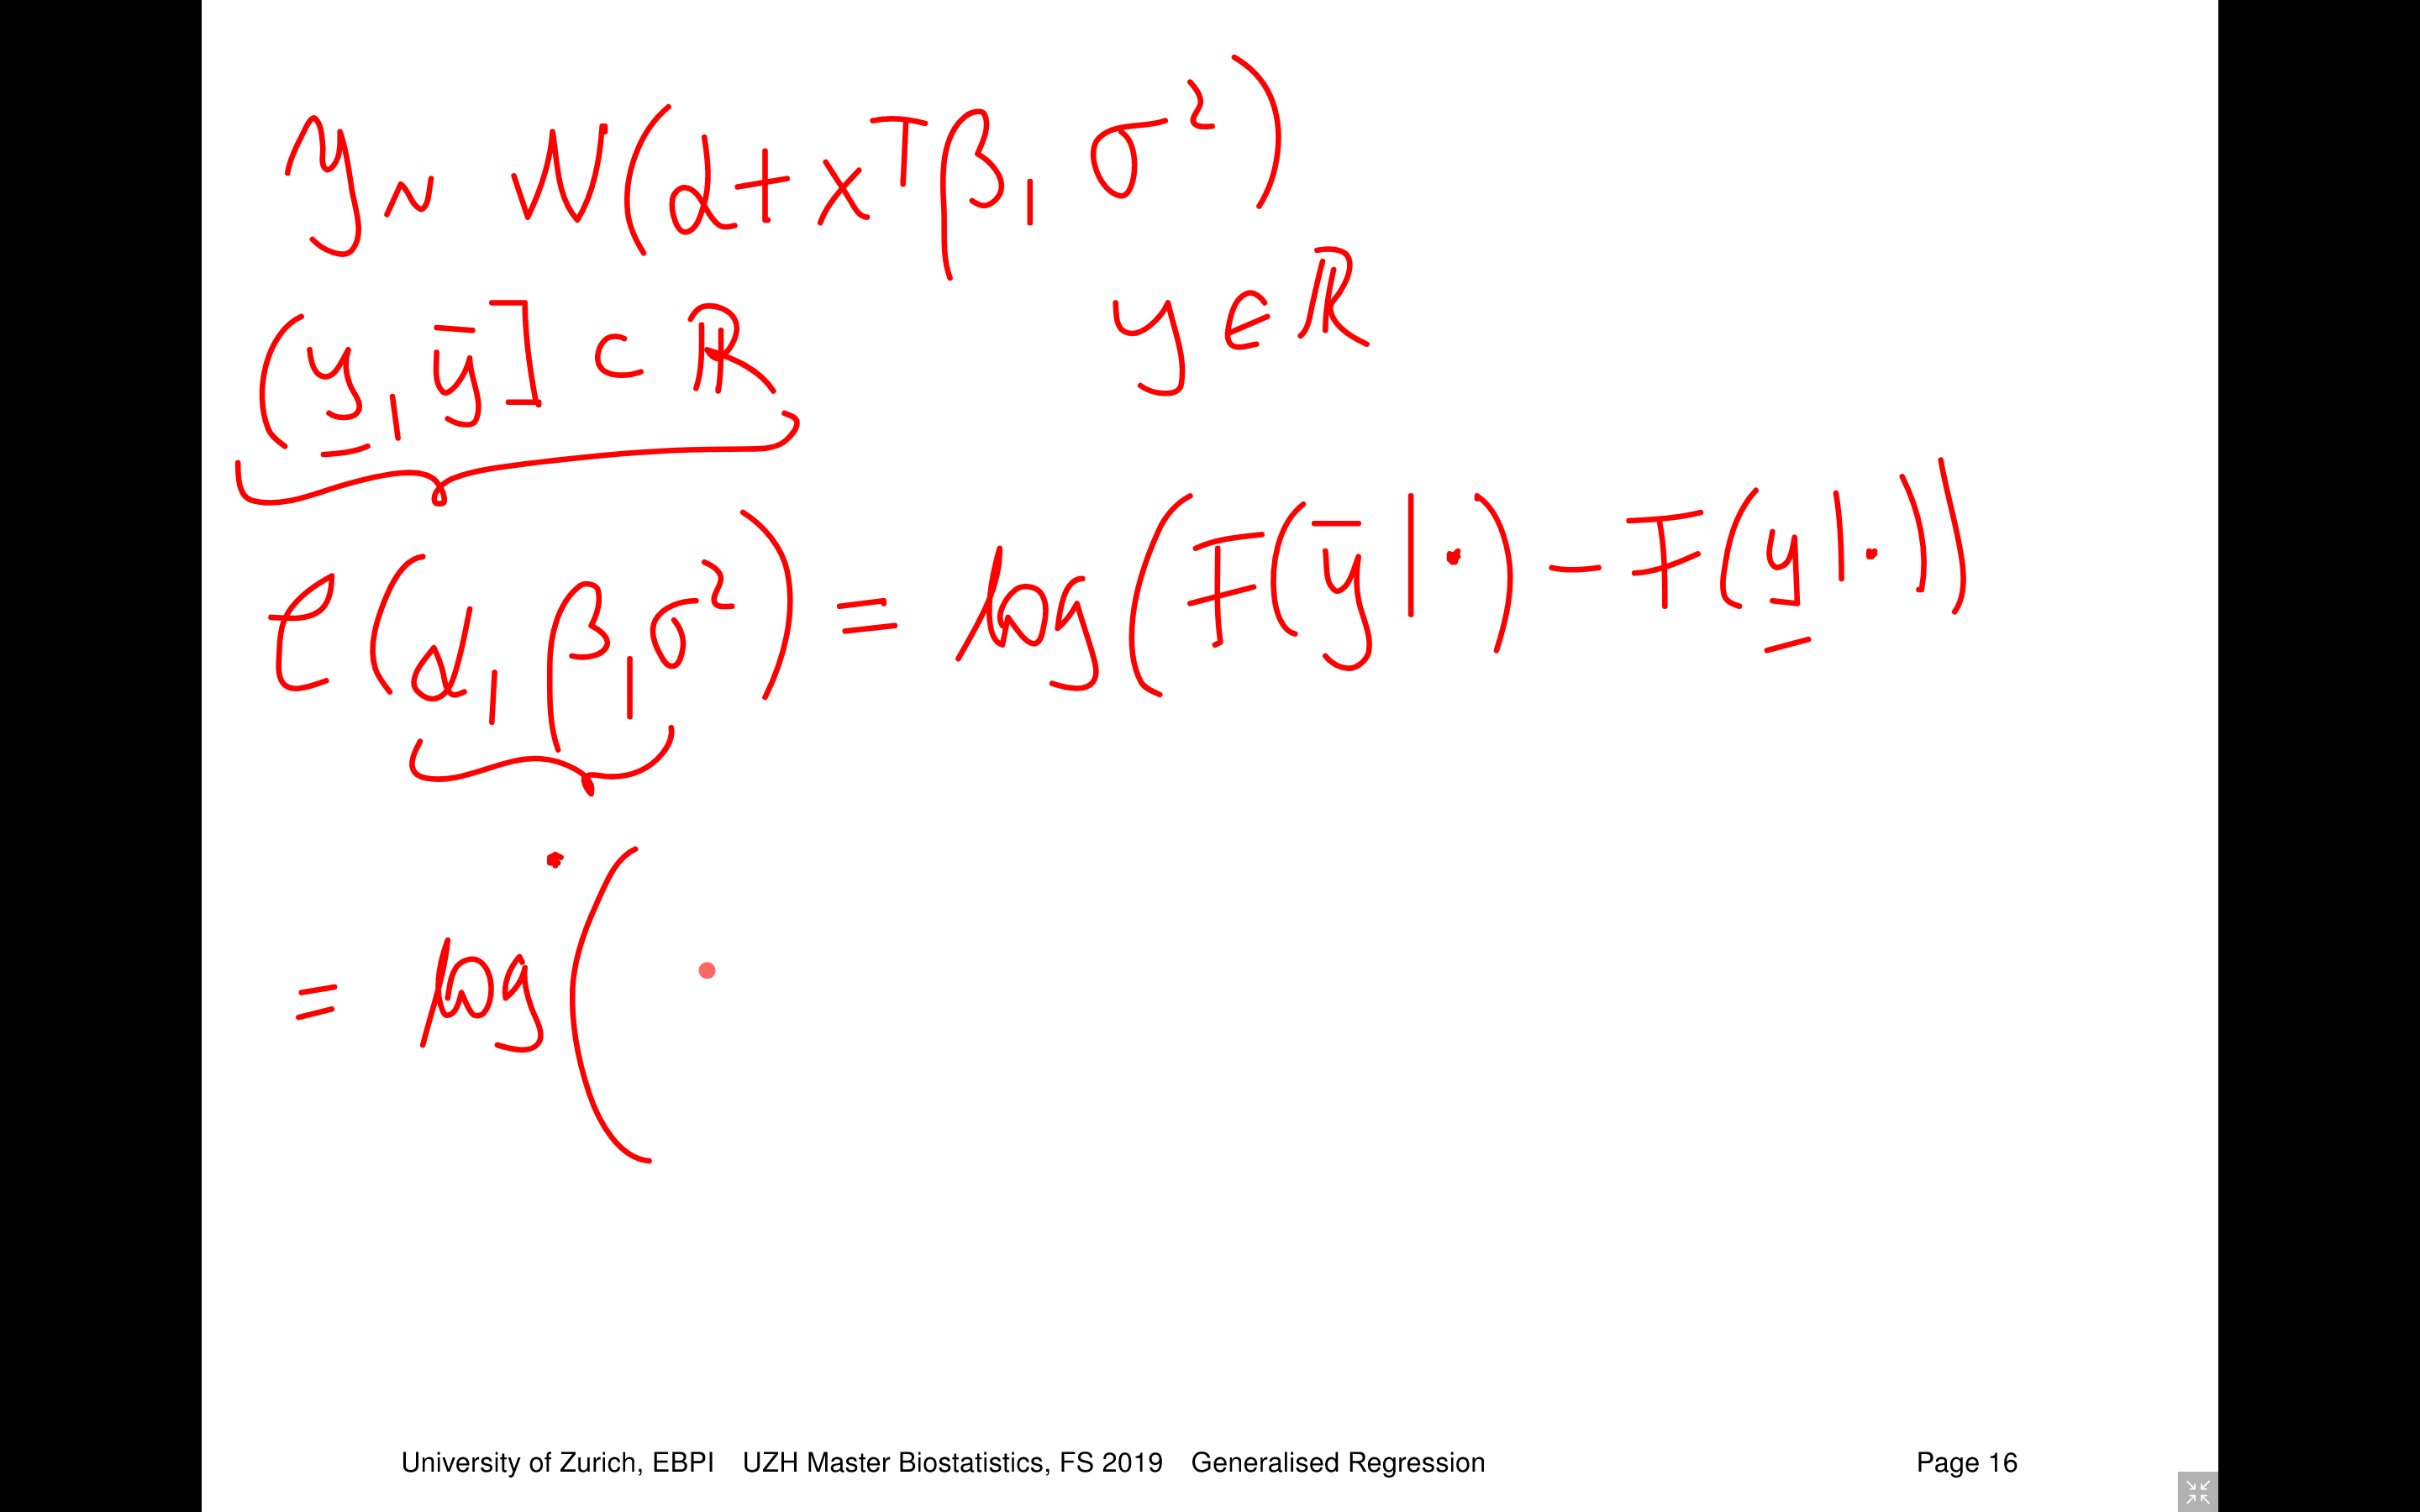 y ~ N(α + xᵀβ, σ²)
(y̲, ȳ] ⊂ ℝ y ∈ ℝ
ℓ(α, β, σ²) = log(F(ȳ|·) − F(y̲|·))
= log(
University of Zurich, EBPI UZH Master Biostatistics, FS 2019 Generalised Regression Page 16